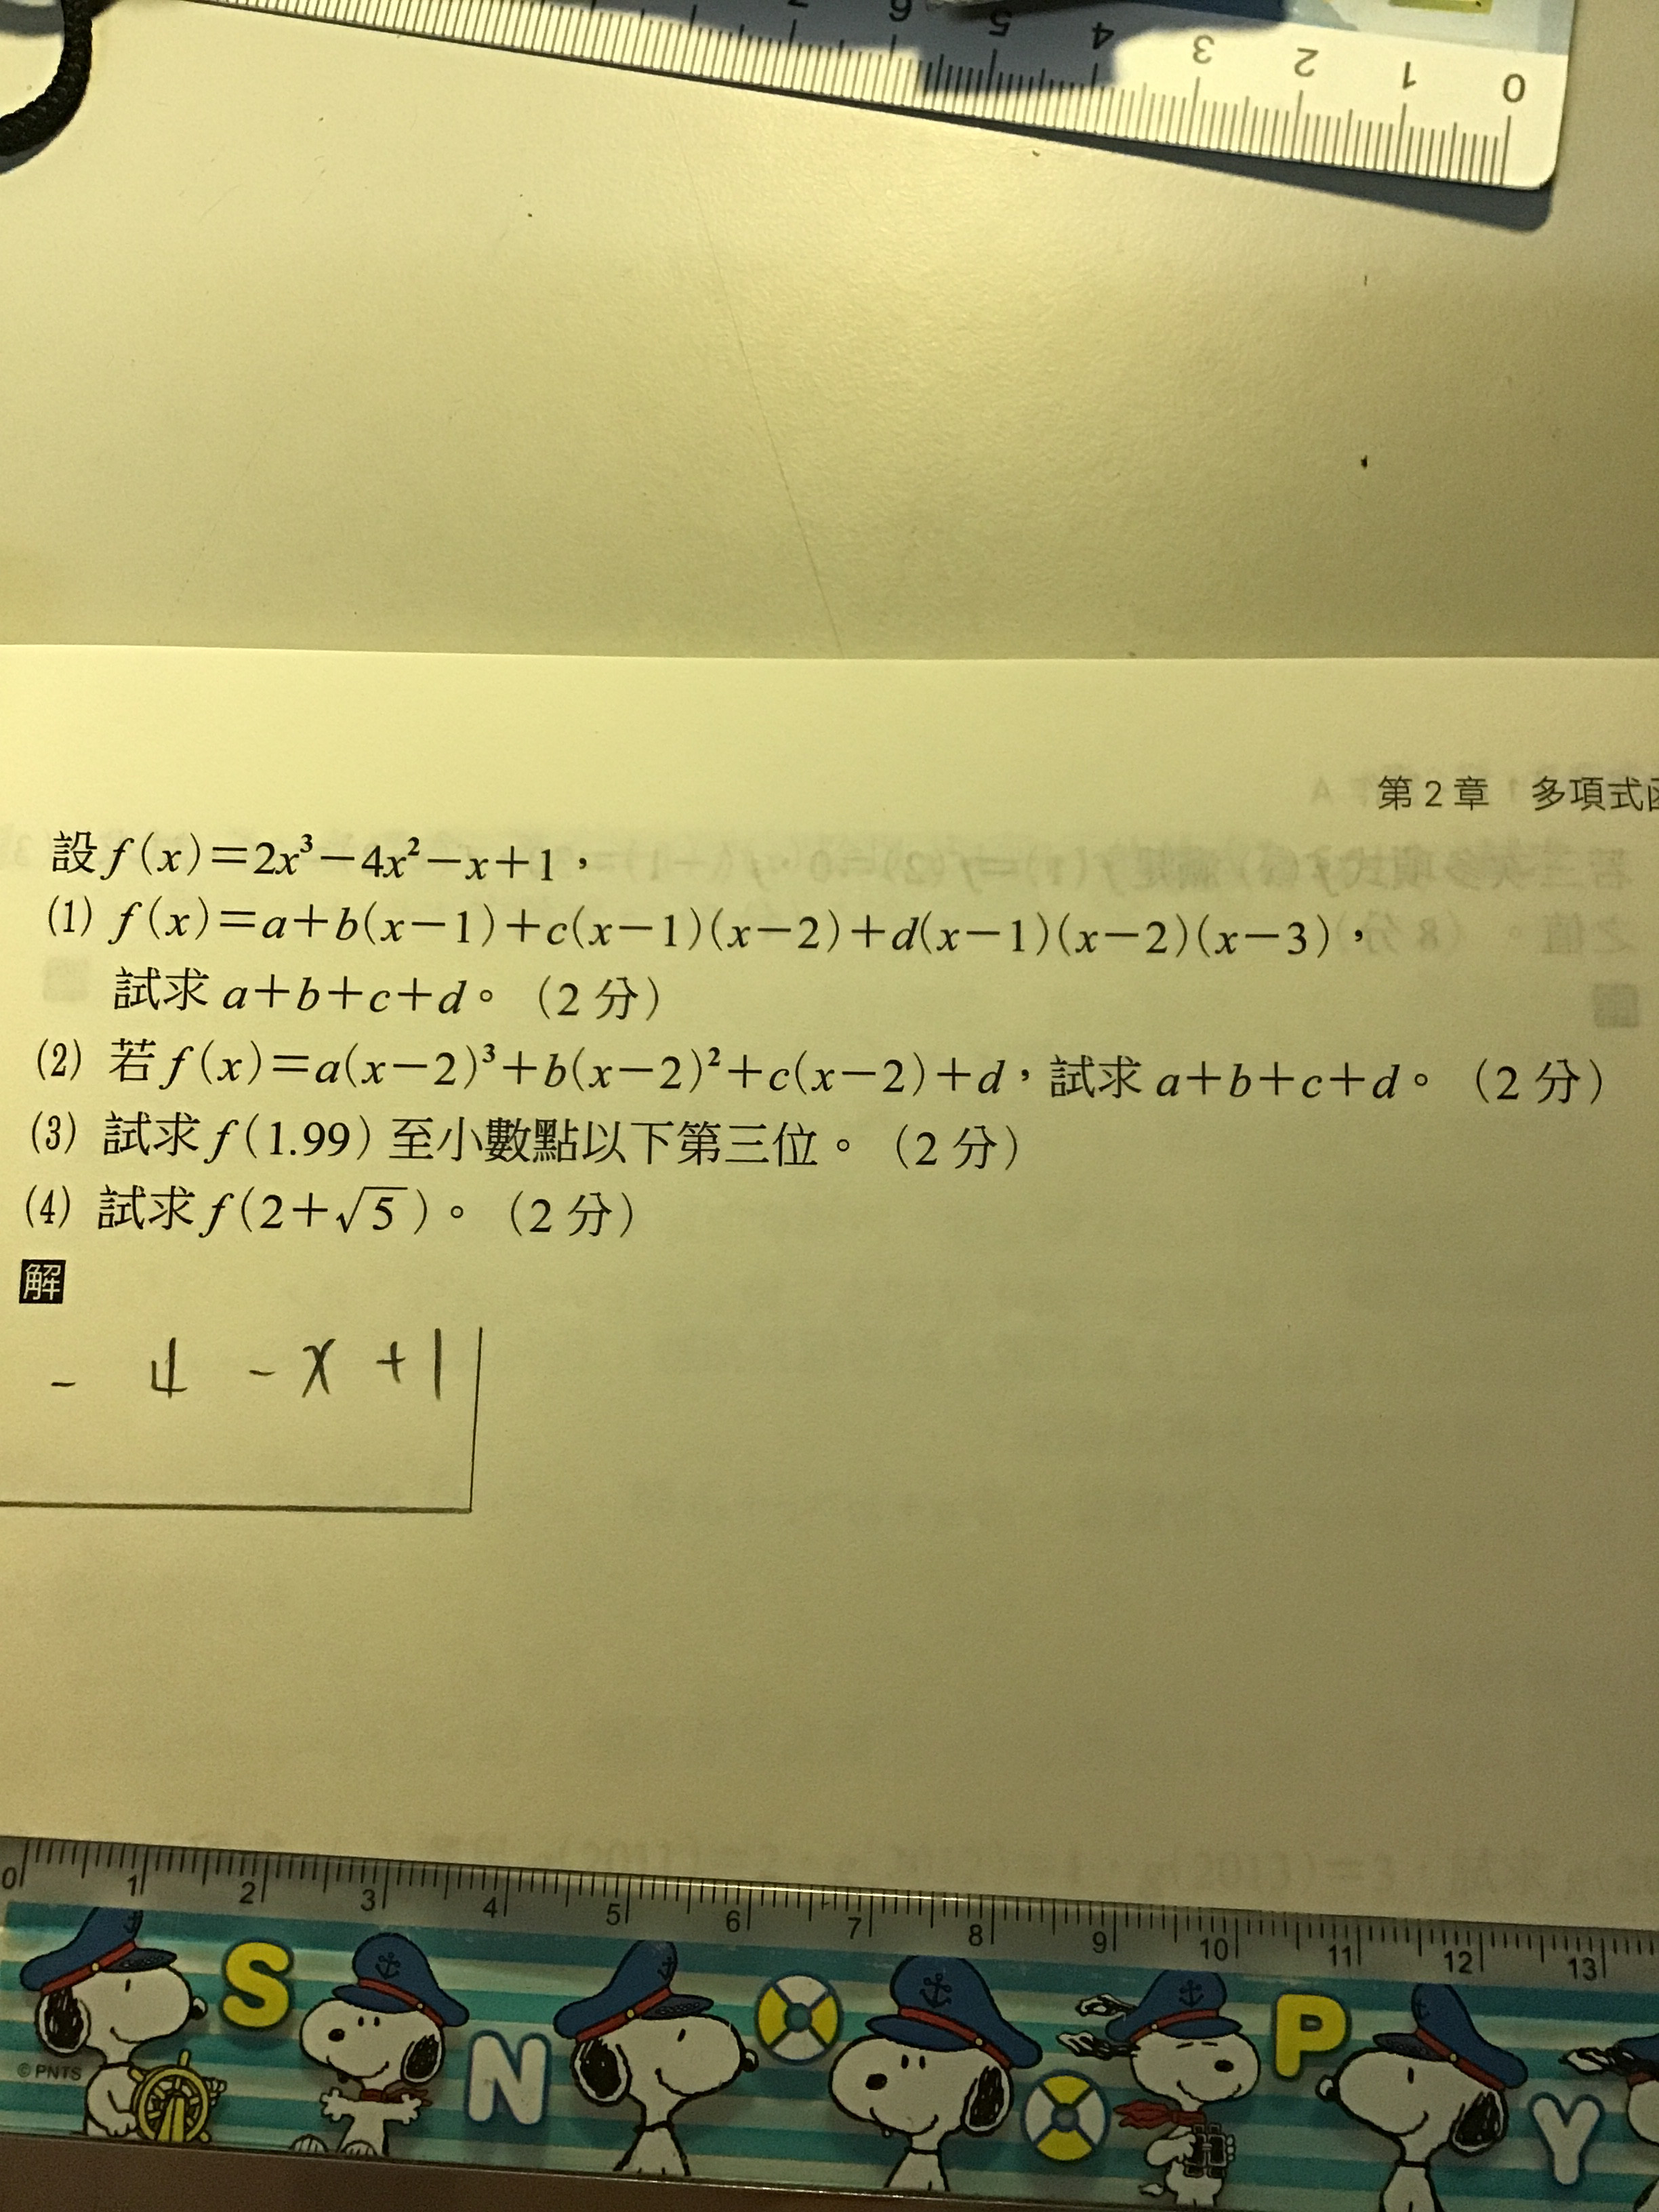 7 6 5 4 3 2 1 0
第2章 多項式
設f(x)=2x³-4x²-x+1,
(1) f(x)=a+b(x-1)+c(x-1)(x-2)+d(x-1)(x-2)(x-3),
試求 a+b+c+d。(2分)
(2) 若f(x)=a(x-2)³+b(x-2)²+c(x-2)+d,試求 a+b+c+d。(2分)
(3) 試求f(1.99)至小數點以下第三位。(2分)
(4) 試求f(2+√5)。(2分)
解
- 4 - x +1
0 1 2 3 4 5 6 7 8 9 10 11 12 13
S N P Y
© PNTS